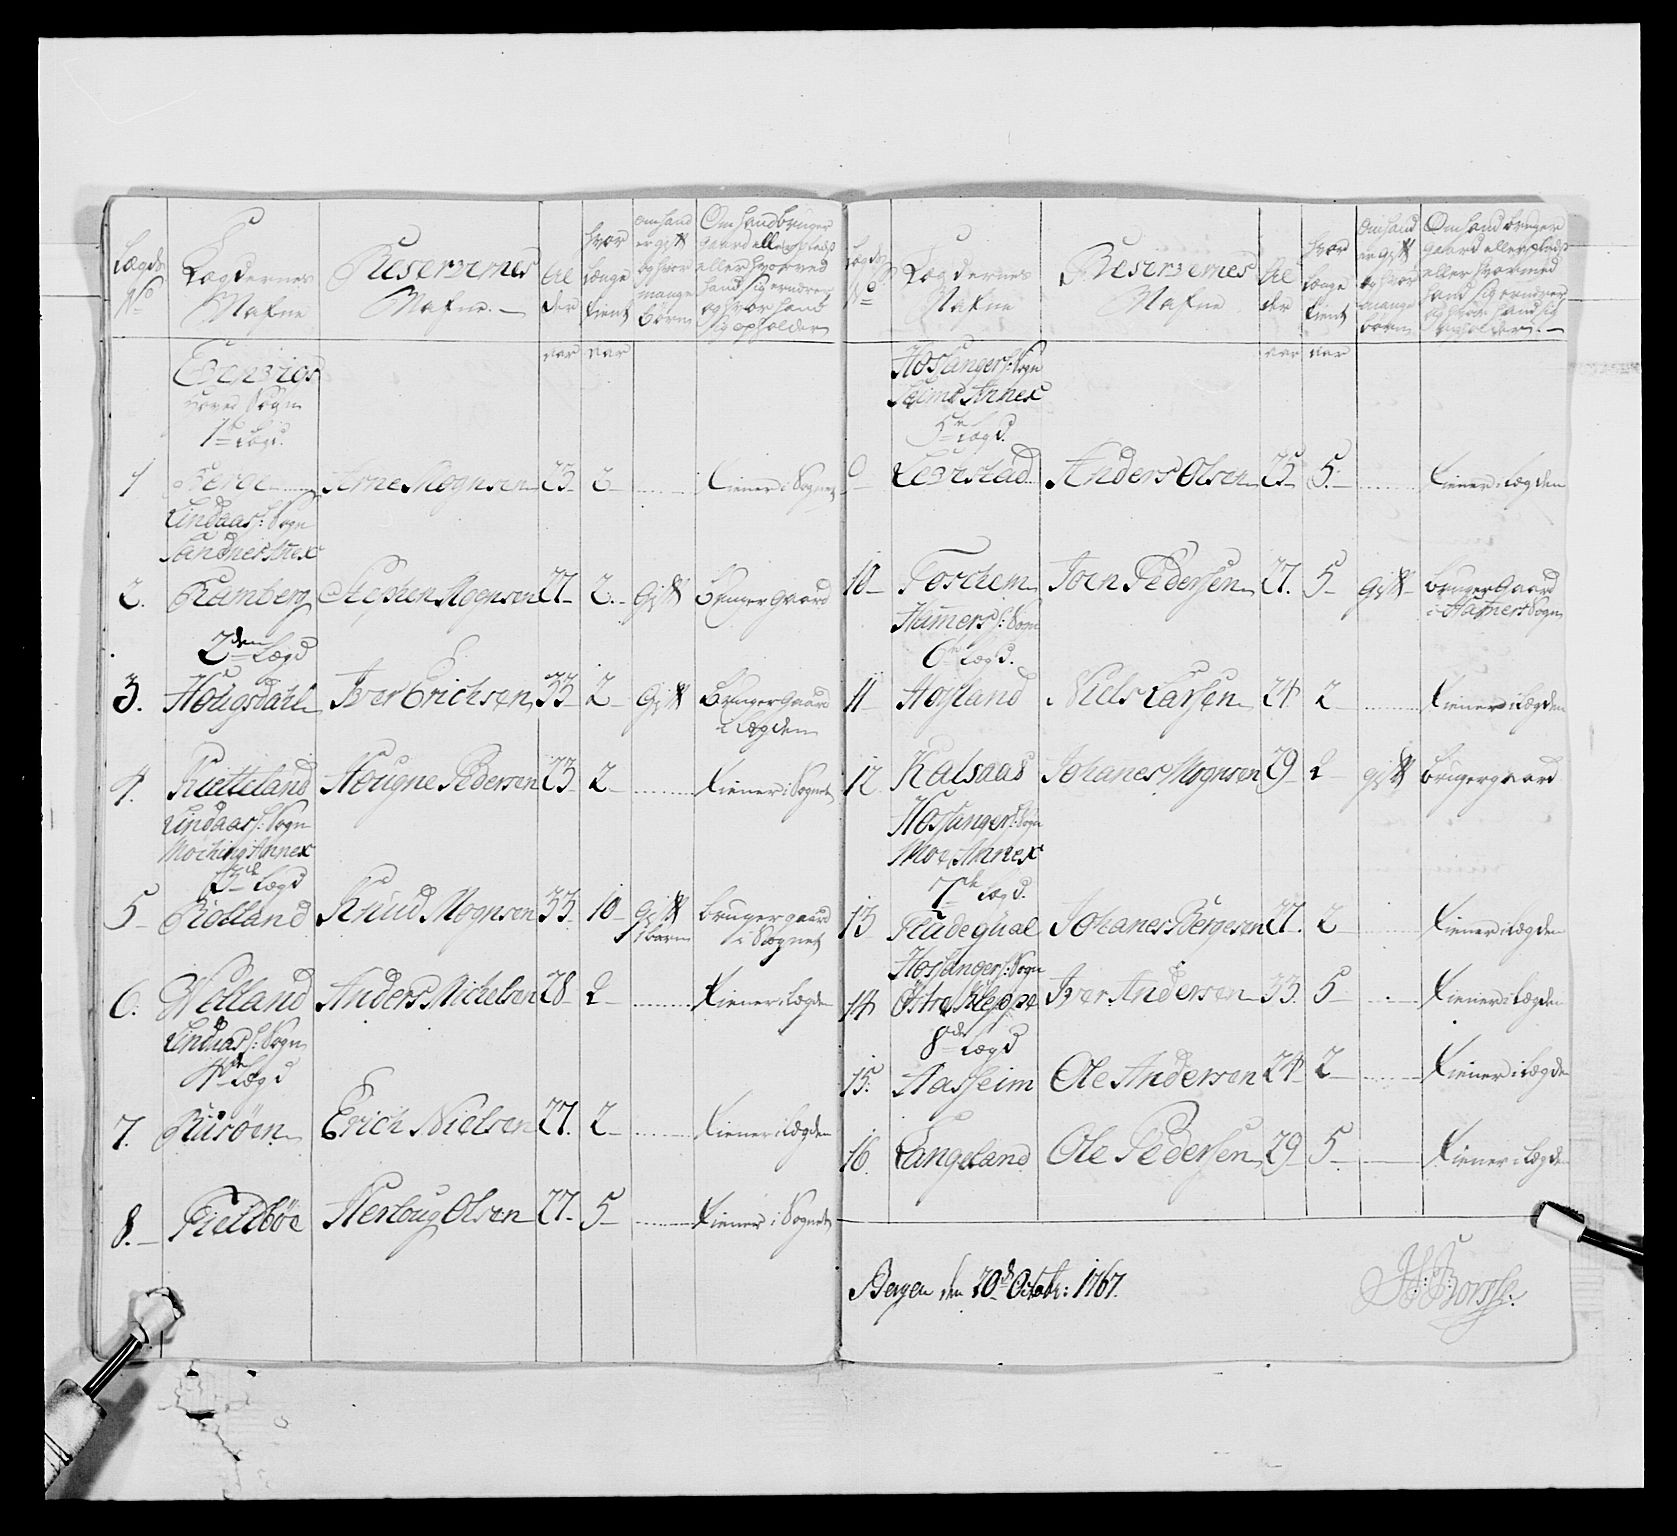 Lægds No
Lægdernes Nafne
Reservernes Nafne.
Al der
hvor længe tient
om hand er gift og hvor mange børn
Om hand bruger gaard eller plads eller hvorved hand sig ernærer og hvor hand sig opholder
aar aar
Evenvigs
Hoved Sogn
1te Lægd.
1 Berge Arne Mognsen 23 2 Tiener i Sognet
Lindaas s: Sogn
Sandnes Anex
2. Ramberg Stephen Mognsen 27 2. Gift Bruger gaard
2den Lægd
3. Hougsdahl Iver Erichsen 33 2 Gift Bruger Gaard
i Lægden
4. Kietteland Hougne Pedersen 23 2 Tiener i Sognet
Lindaas s: Sogn
Moching Annex
3de Lægd
5 Risland Knud Mognsen 33 10 gift bruger gaard
1 barn i Sognet
6. Welland Anders Michelsen 28 2 Tiener i Lægden
Lindaas s: Sogn
4de Lægd
7. Risöen Erich Nielsen 27. 2 Tiener i Lægden
8. Fieldböe Herloug Olsen 27 5 Tiener i Sognet
Lægds No
Lægdernes Nafne
Reservernes Nafne
Al der
hvor længe tient
Om hand er gift og hvor mange børn
Om hand bruger gaard eller plads eller hvormed hand sig ernærer og hvor hand sig opholder.
aar aar
Hosanger s: Sogn
Seims Annex
5te Lægd.
9 Leirstad Anders Olsen 25 5. Tiener i Lægden
10 Foschem Joen Pedersen 27. 5 gift bruger Gaard
i Hamers Sogn
Hamers s: Sogn
6te Lægd.
11 Hopland Niels Larsen 24 2 Tiener i Lægden
12 Kalsaas Johanes Mognsen 29 2 gift brugergaard
Hosanger s: Sogn
Moe Annex
7de Lægd.
13 Fladequal Johanes Børgesen 27. 2 Tiener i Lægden
Hosanger s: Sogn
14 Östre Kleppe Iver Andersen 33. 5 Tiener i Lægden
8de Lægd
15. Aasheim Ole Andersen 24 2 Tiener i Lægden
16. Langeland Ole Pedersen 29 5 Tiener i Lægden
Bergen den 20de Octobr: 1767.